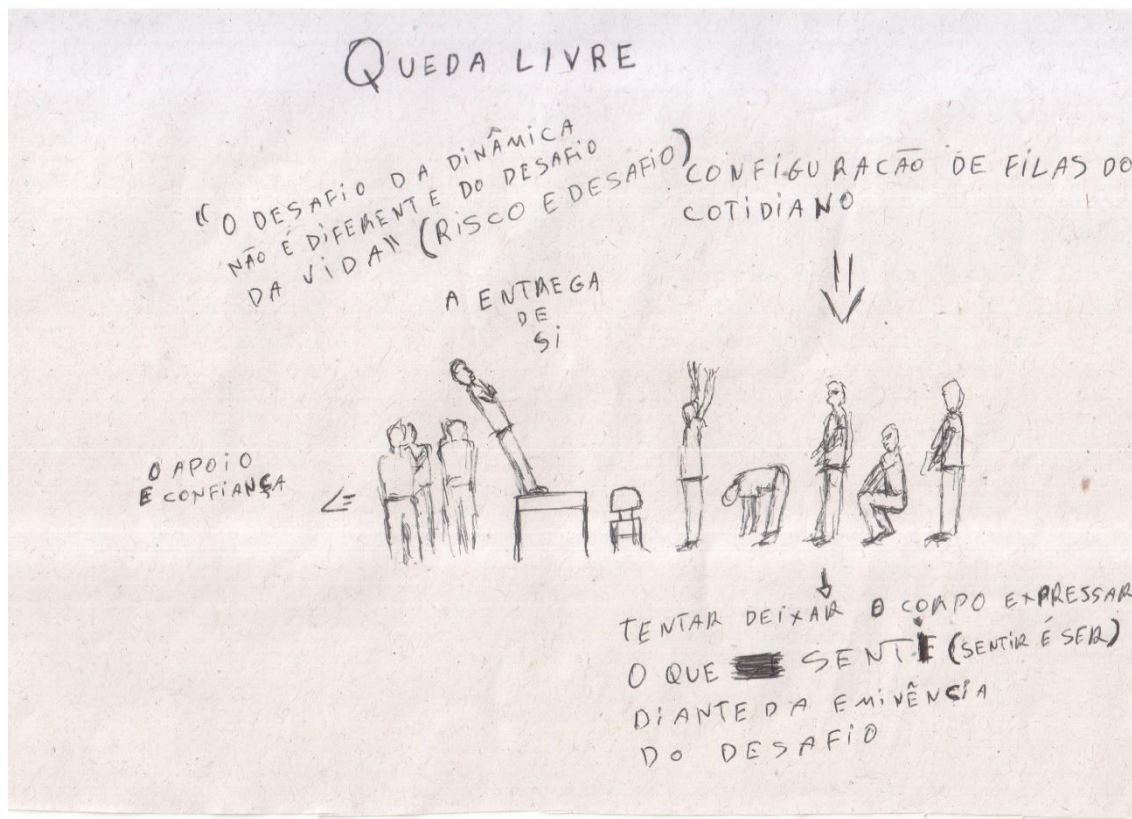 QUEDA LIVRE
"O DESAFIO DA DINÂMICA
NÃO É DIFERENTE DO DESAFIO
DA VIDA" (RISCO E DESAFIO)
CONFIGURACÃO DE FILAS DO
COTIDIANO
A ENTREGA
DE
SI
O APOIO
E CONFIANÇA
TENTAR DEIXAR O CORPO EXPRESSAR
O QUE SENTE (SENTIR É SER)
DIANTE DA EMINÊNCIA
DO DESAFIO